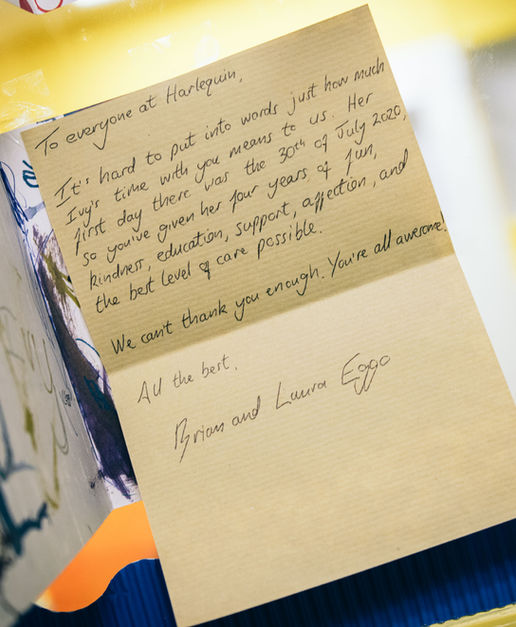 To everyone at Harlequin,
It's hard to put into words just how much
Ivy's time with you means to us. Her
first day there was the 30th of July 2020,
so you've given her four years of fun,
kindness, education, support, affection, and
the best level of care possible.
We can't thank you enough. You're all awesome!
All the best,
Brian and Laura Eggo